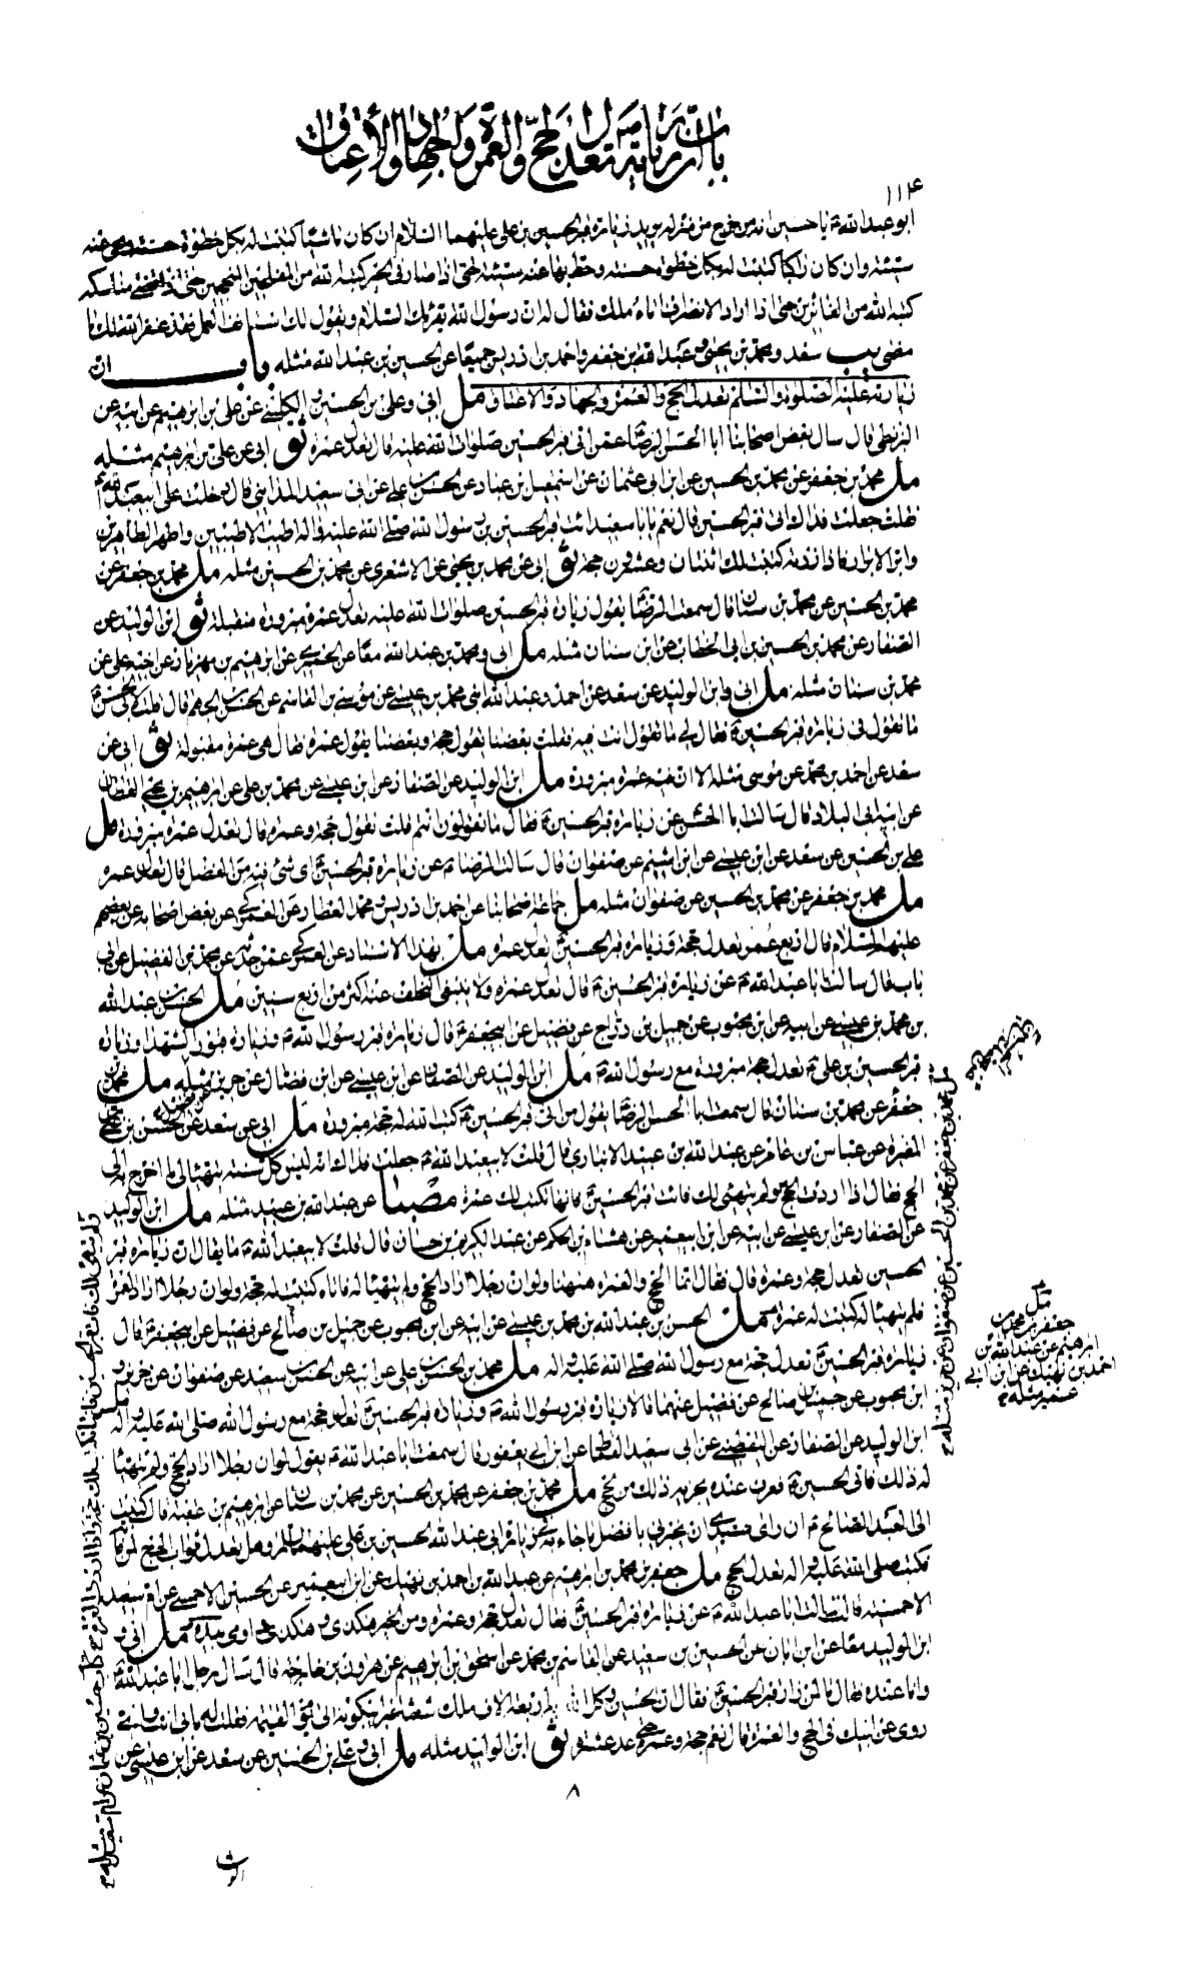 باب ان زيارته تعدل الحج والعمرة والجهاد والاعتاق
١١٤
ابو عبد الله ع يا حسين انه من خرج من منزله يريد زيارة قبر الحسين بن علي عليهما السلام ان كان ماشيا كتبت له بكل خطوة حسنة ومحى عنه
سيئة وان كان راكبا كتبت له بكل خطوة حسنة وحط بها عنه سيئة حتى اذا صار في الحير كتبه الله من المفلحين المنجحين حتى اذا قضى مناسكه
كتبه الله من الفائزين حتى اذا اراد الانصراف اتاه ملك فقال له ان رسول الله يقرئك السلام ويقول لك استانف العمل فقد غفر الله لك ما
مضى يب سعد ومحمد بن يحيى وعبد الله بن جعفر واحمد بن ادريس جميعا عن الحسين بن عبد الله مثله باب ان
زيارته عليه الصلوة والسلام تعدل الحج والعمرة والجهاد والاعتاق مل ابي وعلي بن الحسين والكليني عن علي بن ابرهيم عن ابيه عن
البزنطي قال سال بعض اصحابنا ابا الحسن الرضا ع عمن اتى قبر الحسين صلوات الله عليه قال تعدل عمرة ثو ابي عن علي بن ابرهيم مثله
مل محمد بن جعفر عن محمد بن الحسين عن ابن ابي عثمان عن اسمعيل بن عباد عن الحسن بن علي عن ابي سعيد المدائني قال دخلت على ابيعبد الله ع
فقلت جعلت فداك اتي قبر الحسين قال نعم يا با سعيد ائت قبر الحسين بن رسول الله صلى الله عليه واله اطيب الاطيبين واطهر الطاهرين
وابر الابرار فاذا زرته كتبت لك اثنتان وعشرون حجة ثو ابي عن محمد بن يحيى عن الاشعري عن محمد بن الحسين مثله مل محمد بن جعفر عن
محمد بن الحسين عن محمد بن سنان قال سمعت الرضا ع يقول زيارة قبر الحسين صلوات الله عليه تعدل عمرة مبرورة متقبلة ثو ابن الوليد عن
الصفار عن محمد بن الحسين بن ابي الخطاب عن ابن سنان مثله مل ابي ومحمد بن عبد الله معا عن الحميري عن ابرهيم بن مهزيار عن اخيه علي عن
محمد بن سنان مثله مل ابي وابن الوليد عن سعد عن احمد وعبد الله ابني محمد بن عيسى عن موسى بن القاسم عن الحسن بن الجهم قال قلت لابي الحسن ع
ما تقول في زيارة قبر الحسين ع فقال لي ما تقول انت فيه فقلت بعضنا يقول حجة وبعضنا يقول عمرة فقال هي عمرة مقبولة ثو ابي عن
سعد عن احمد بن محمد عن موسى مثله الا ان فيه عمرة مبرورة مل ابن الوليد عن الصفار عن ابن عيسى عن محمد بن علي عن ابرهيم بن يحيى القطان
عن ابيه ابي البلاد قال سالت ابا الحسن عن زيارة قبر الحسين ع فقال ما تقولون انتم قلت نقول حجة وعمرة قال تعدل عمرة مبرورة مل
علي بن الحسين عن سعد عن ابن عيسى عن ابن اشيم عن صفوان قال سالت الرضا ع عن زيارة قبر الحسين ع اي شئ فيه من الفضل قال تعدل عمرة
مل محمد بن جعفر عن محمد بن الحسين عن صفوان مثله مل جماعة اصحابنا عن احمد بن ادريس ومحمد العطار عن العمركي عن بعض اصحابه عن بعضهم
عليهم السلام قال اربع عمر تعدل حجة وزيارة قبر الحسين ع تعدل عمرة مل بهذا الاسناد عن العمركي عمن حدثه عن محمد بن الفضيل عن ابن
باب قال سالت ابا عبد الله ع عن زيارة قبر الحسين ع قال تعدل عمرة ولا ينبغي التخلف عنه اكثر من اربع سنين مل الحسن بن عبد الله
بن محمد بن عيسى عن ابيه عن ابن محبوب عن جميل بن دراج عن فضيل عن ابيجعفر ع قال زيارة قبر رسول الله ع وزيارة قبور الشهدا وزيارة
قبر الحسين بن علي ع تعدل حجة مبرورة مع رسول الله ع مل ابن الوليد عن الصفار عن ابن عيسى عن ابن فضال عن حريز عن فضيل مثله مل محمد بن
جعفر عن محمد بن سنان قال سمعت ابا الحسن الرضا ع يقول من اتى قبر الحسين ع كتب الله له حجة مبرورة مل ابي عن سعد عن الحسن بن علي بن
المغيرة عن عباس بن عامر عن عبد الله بن عبيد الانباري قال قلت لابيعبد الله ع جعلت فداك انه ليس كل سنة يتهيا لي ما اخرج به الى
الحج فقال اذا اردت الحج ولم يتهيا لك فائت قبر الحسين ع فانها تكتب لك عمرة مصبا عن عبد الله بن عبيد مثله مل ابن الوليد
عن الصفار عن ابن عيسى عن ابيه عن ابن ابيعمير عن هشام بن الحكم عن عبد الكريم بن حسان قال قلت لابيعبد الله ع ما يقال ان زيارة قبر
الحسين تعدل حجة وعمرة قال فقال انما الحج والعمرة ههنا ولو ان رجلا اراد الحج ولم يتهيا له فاتاه كتبت له حجة ولو ان رجلا اراد العمرة
فلم يتهيا له كتبت له عمرة مل الحسن بن عبد الله بن محمد بن عيسى عن ابيه عن ابن محبوب عن جميل بن صالح عن فضيل عن ابيجعفر ع قال
زيارة قبر الحسين ع تعدل حجة مع رسول الله صلى الله عليه واله مل محمد بن الحسن بن علي عن ابيه عن الحسن بن سعيد عن صفوان عن حريز و
ابن محبوب عن جميل بن صالح عن فضيل عنهما قالا زيارة قبر رسول الله ع وزيارة قبر الحسين ع تعدل حجة مع رسول الله صلى الله عليه واله مل
ابن الوليد عن الصفار عن اليقطيني عن ابي سعيد القماط عن ابن ابي يعفور قال سمعت ابا عبد الله ع يقول لو ان رجلا اراد الحج ولم يتهيا
له ذلك فاتى الحسين ع فعرف عنده يجزيه ذلك من حج مل محمد بن جعفر عن محمد بن الحسين عن محمد بن سنان عن ابرهيم بن عقبة قال كتبت
الى العبد الصالح ع ان راى سيدي ان يخبرني بافضل ما جاء به في زيارة ابي عبد الله الحسين بن علي عليهما السلام وهل تعدل ثواب الحج لمن فاته
فكتب صلى الله عليه واله تعدل الحج مل جعفر بن محمد بن ابرهيم عن عبد الله بن احمد بن نهيك عن ابن ابيعمير عن الحسين الاحمسي عن ام سعيد
الاحمسية قالت سالت ابا عبد الله ع عن زيارة قبر الحسين ع فقال تعدل حجة وعمرة ومن الخير هكذى وهكذى واومى بيده مل ابي و
ابن الوليد معا عن ابن ابان عن الحسين بن سعيد عن القاسم بن محمد عن اسحق بن ابرهيم عن هرون بن خارجة قال سال رجل ابا عبد الله ع
وانا عنده فقال ما لمن زار قبر الحسين ع فقال ان الحسين وكل الله به اربعة الاف ملك شعثا غبرا يبكونه الى يوم القيمة فقلت له بابي انت وامي
روى عن ابيك في الحج والعمرة قال نعم حجة وعمرة حتى عد عشرة ثو ابن الوليد مثله مل ابي وعلي بن الحسين عن سعد عن ابن عيسى عن
٨
مل محمد بن جعفر عن محمد بن الحسين عن صفوان عن حريز مثله ع
مل
جعفر بن محمد بن
ابرهيم عن عبد الله بن
احمد بن نهيك عن ابن ابي
عمير مثله ع